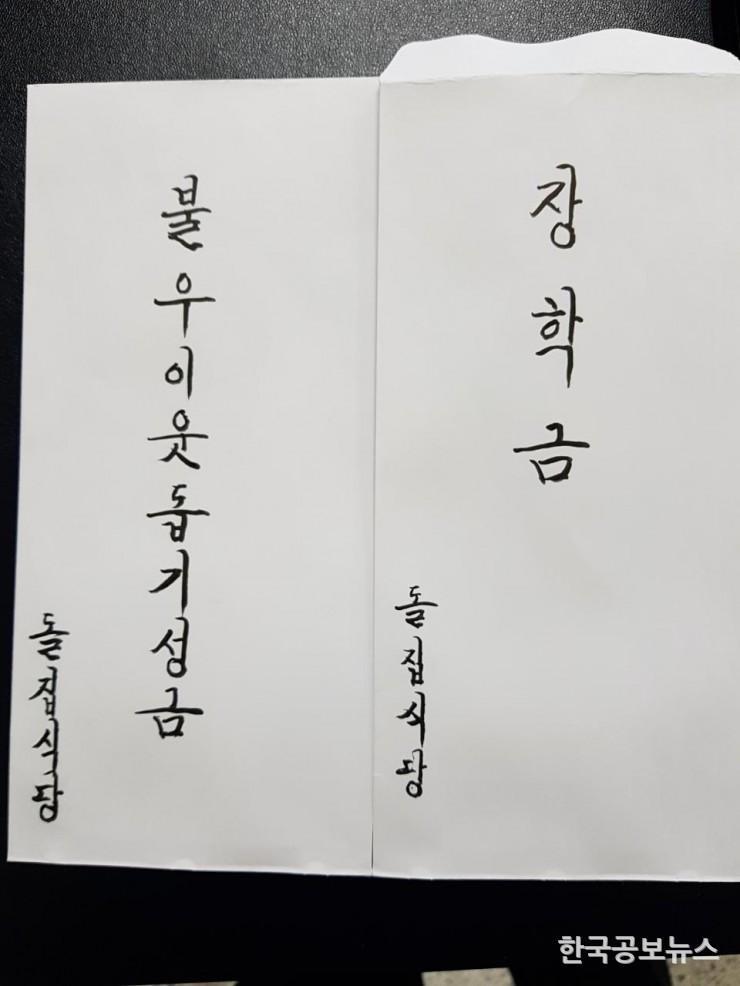 불우이웃돕기성금
돌집식당
장학금
돌집식당
한국공보뉴스